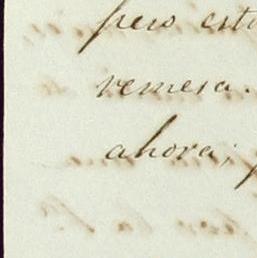 pero est
remesa.
ahora;